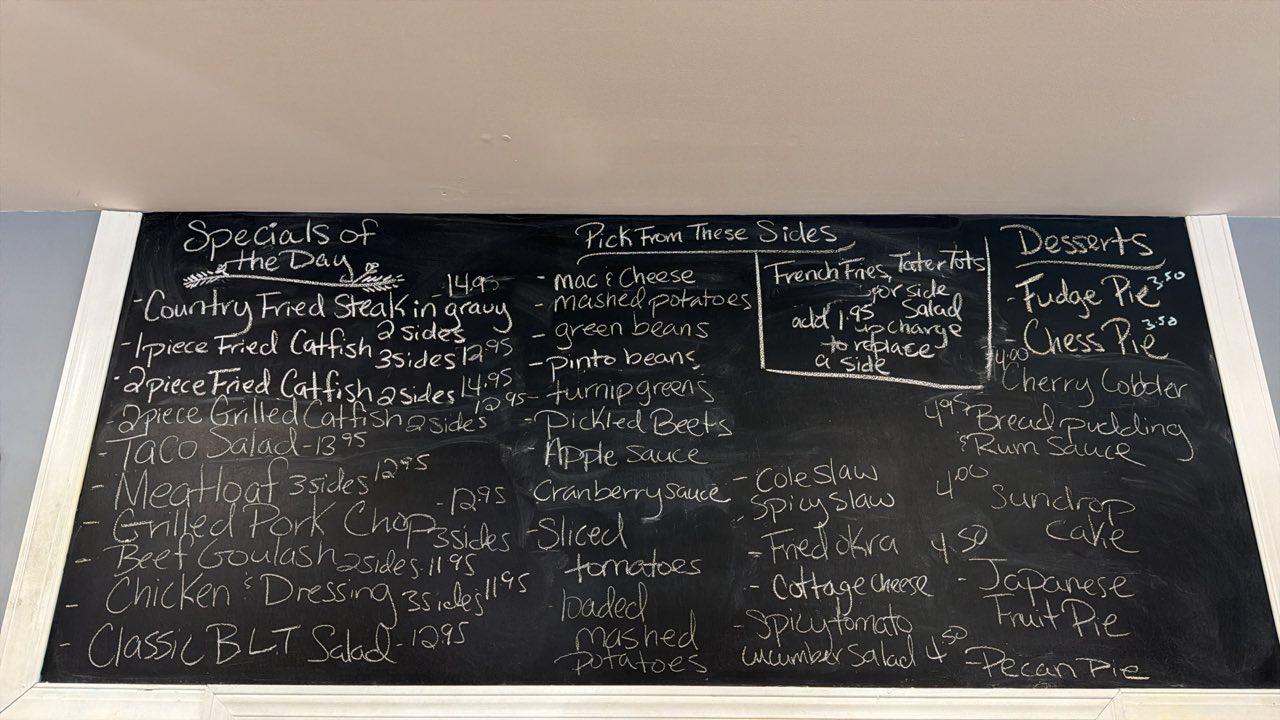 Specials of
the Day
- Country Fried Steak in gravy -14.95
2 sides
- 1piece Fried Catfish 3sides 12.95
- 2piece Fried Catfish 2 sides 14.95
2piece Grilled Catfish 2 sides 12.95
- Taco Salad - 13.95
- Meatloaf 3 sides 12.95
- Grilled Pork Chop 3sides -12.95
- Beef Goulash 2sides. 11.95
- Chicken & Dressing 3sides 11.95
- Classic BLT Salad - 12.95
Pick From These Sides
- mac & Cheese
- mashed potatoes
- green beans
- pinto beans
- turnip greens
- Pickled Beets
- Apple sauce
Cranberry sauce
- Sliced
tomatoes
- loaded
mashed
potatoes
French Fries, Tater Tots
or side
add 1.95 Salad
upcharge
to replace
a side
- Cole slaw
- Spicy slaw
- Fried okra
- Cottage cheese
- Spicy tomato
cucumber salad
Desserts
- Fudge Pie 3.50
- Chess Pie 3.50
4.00 Cherry Cobbler
4.95 Bread pudding
& Rum Sauce
4.00 Sundrop
Cake
4.50 - Japanese
Fruit Pie
4.50 - Pecan Pie